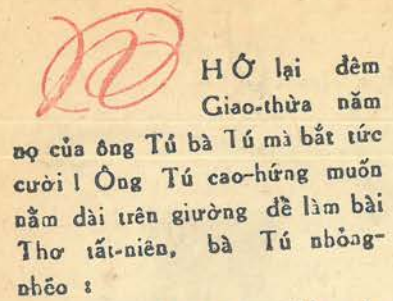 HỚ lại đêm
Giao-thừa năm
nọ của ông Tú bà Tú mà bắt tức
cười ! Ông Tú cao-hứng muốn
nằm dài trên giường để làm bài
Thơ tất-niên, bà Tú nhỏng-
nhẽo :